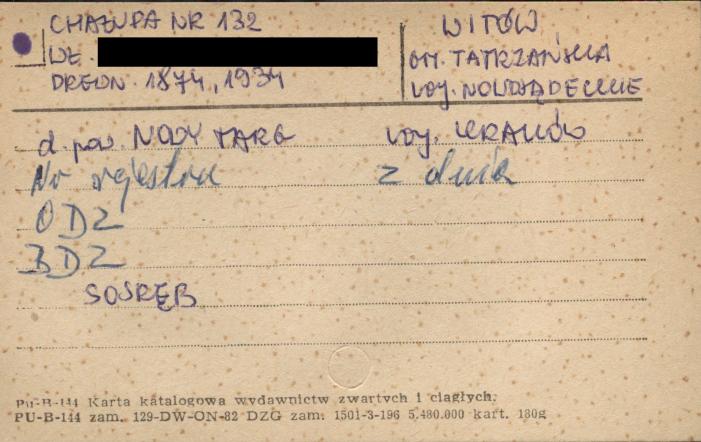 CHAŁUPA NR 132
WŁ.
DREWN. 1874, 1934
WITÓW
GM. TATRZAŃSKA
WOJ. NOWOSĄDECKIE
d. pow. NOWY TARG woj. KRAKÓW
Nr rejestru z dnia
ODZ
BDZ
SOSRĘB
PU-B-144 Karta katalogowa wydawnictw zwartych i ciągłych.
PU-B-144 zam. 129-DW-ON-82 DZG zam. 1501-3-196 5.480.000 kart. 180g